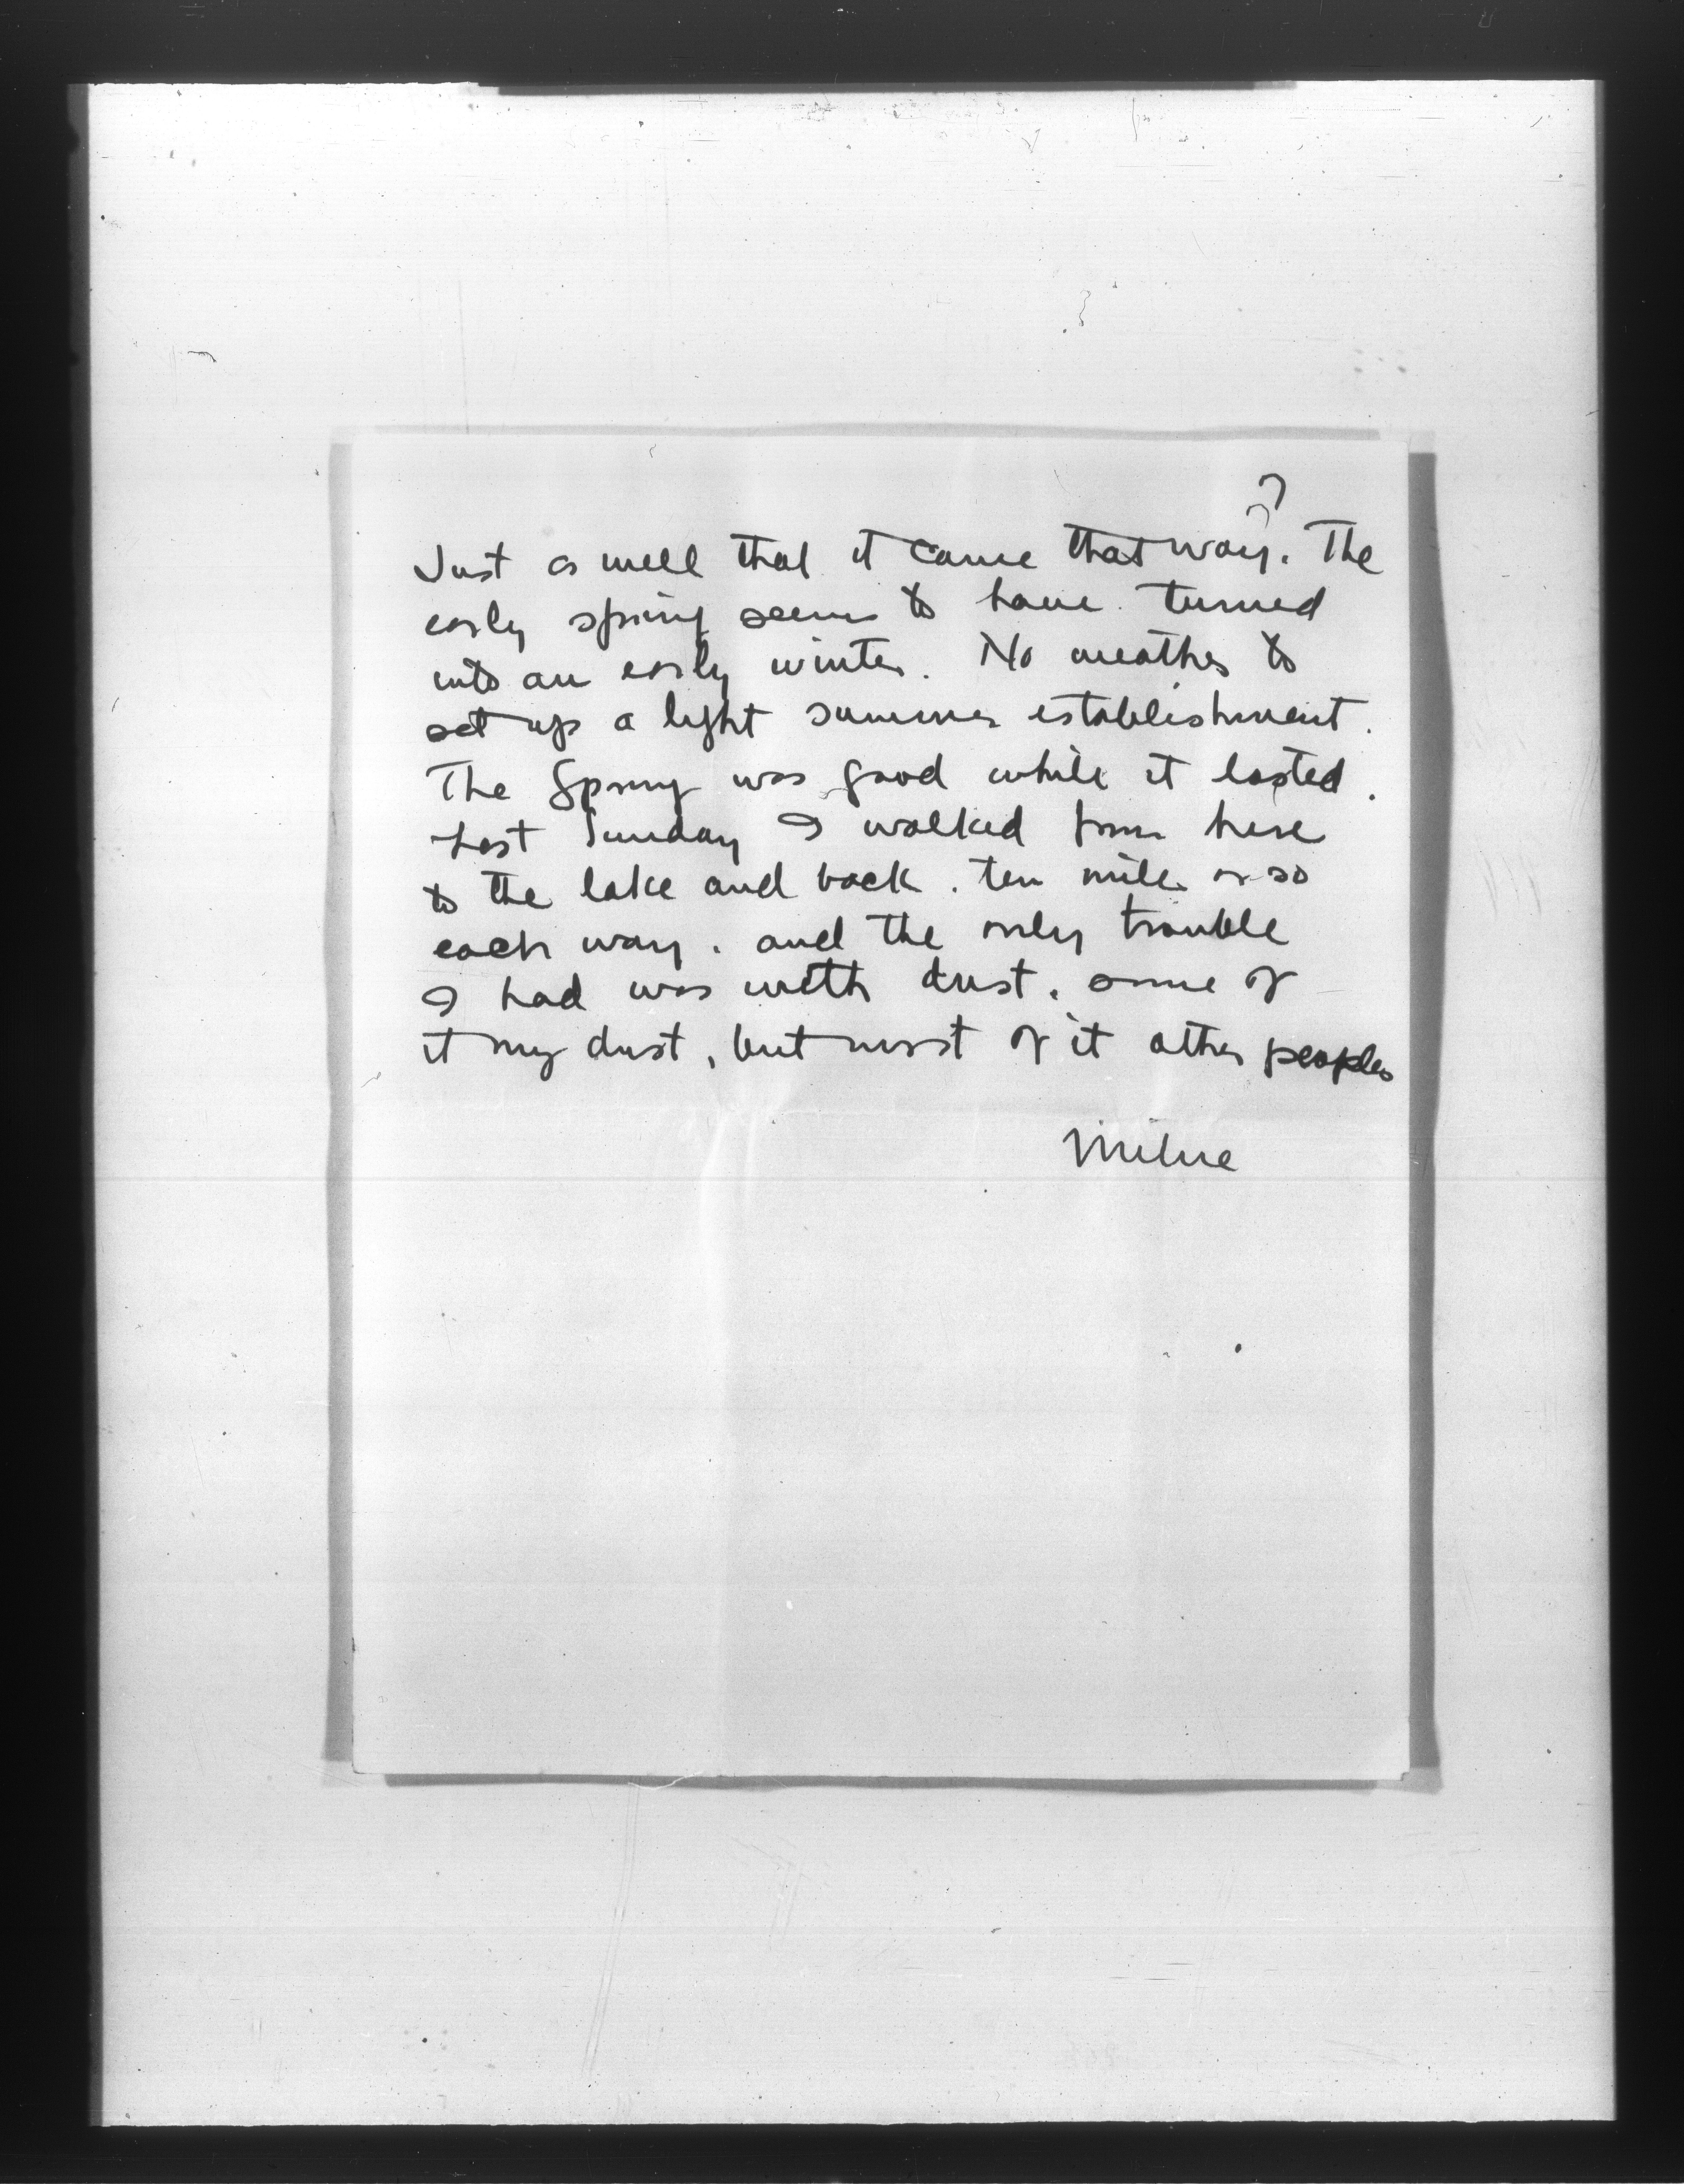 7
Just as well that it came that way. The
early spring seems to have turned
into an early winter. No weather to
set up a light summer establishment.
The Spring was good while it lasted.
Last Sunday I walked from here
to the lake and back. ten miles or so
each way. and the only trouble
I had was with dust. some of
it my dust, but most of it other peoples
Milne